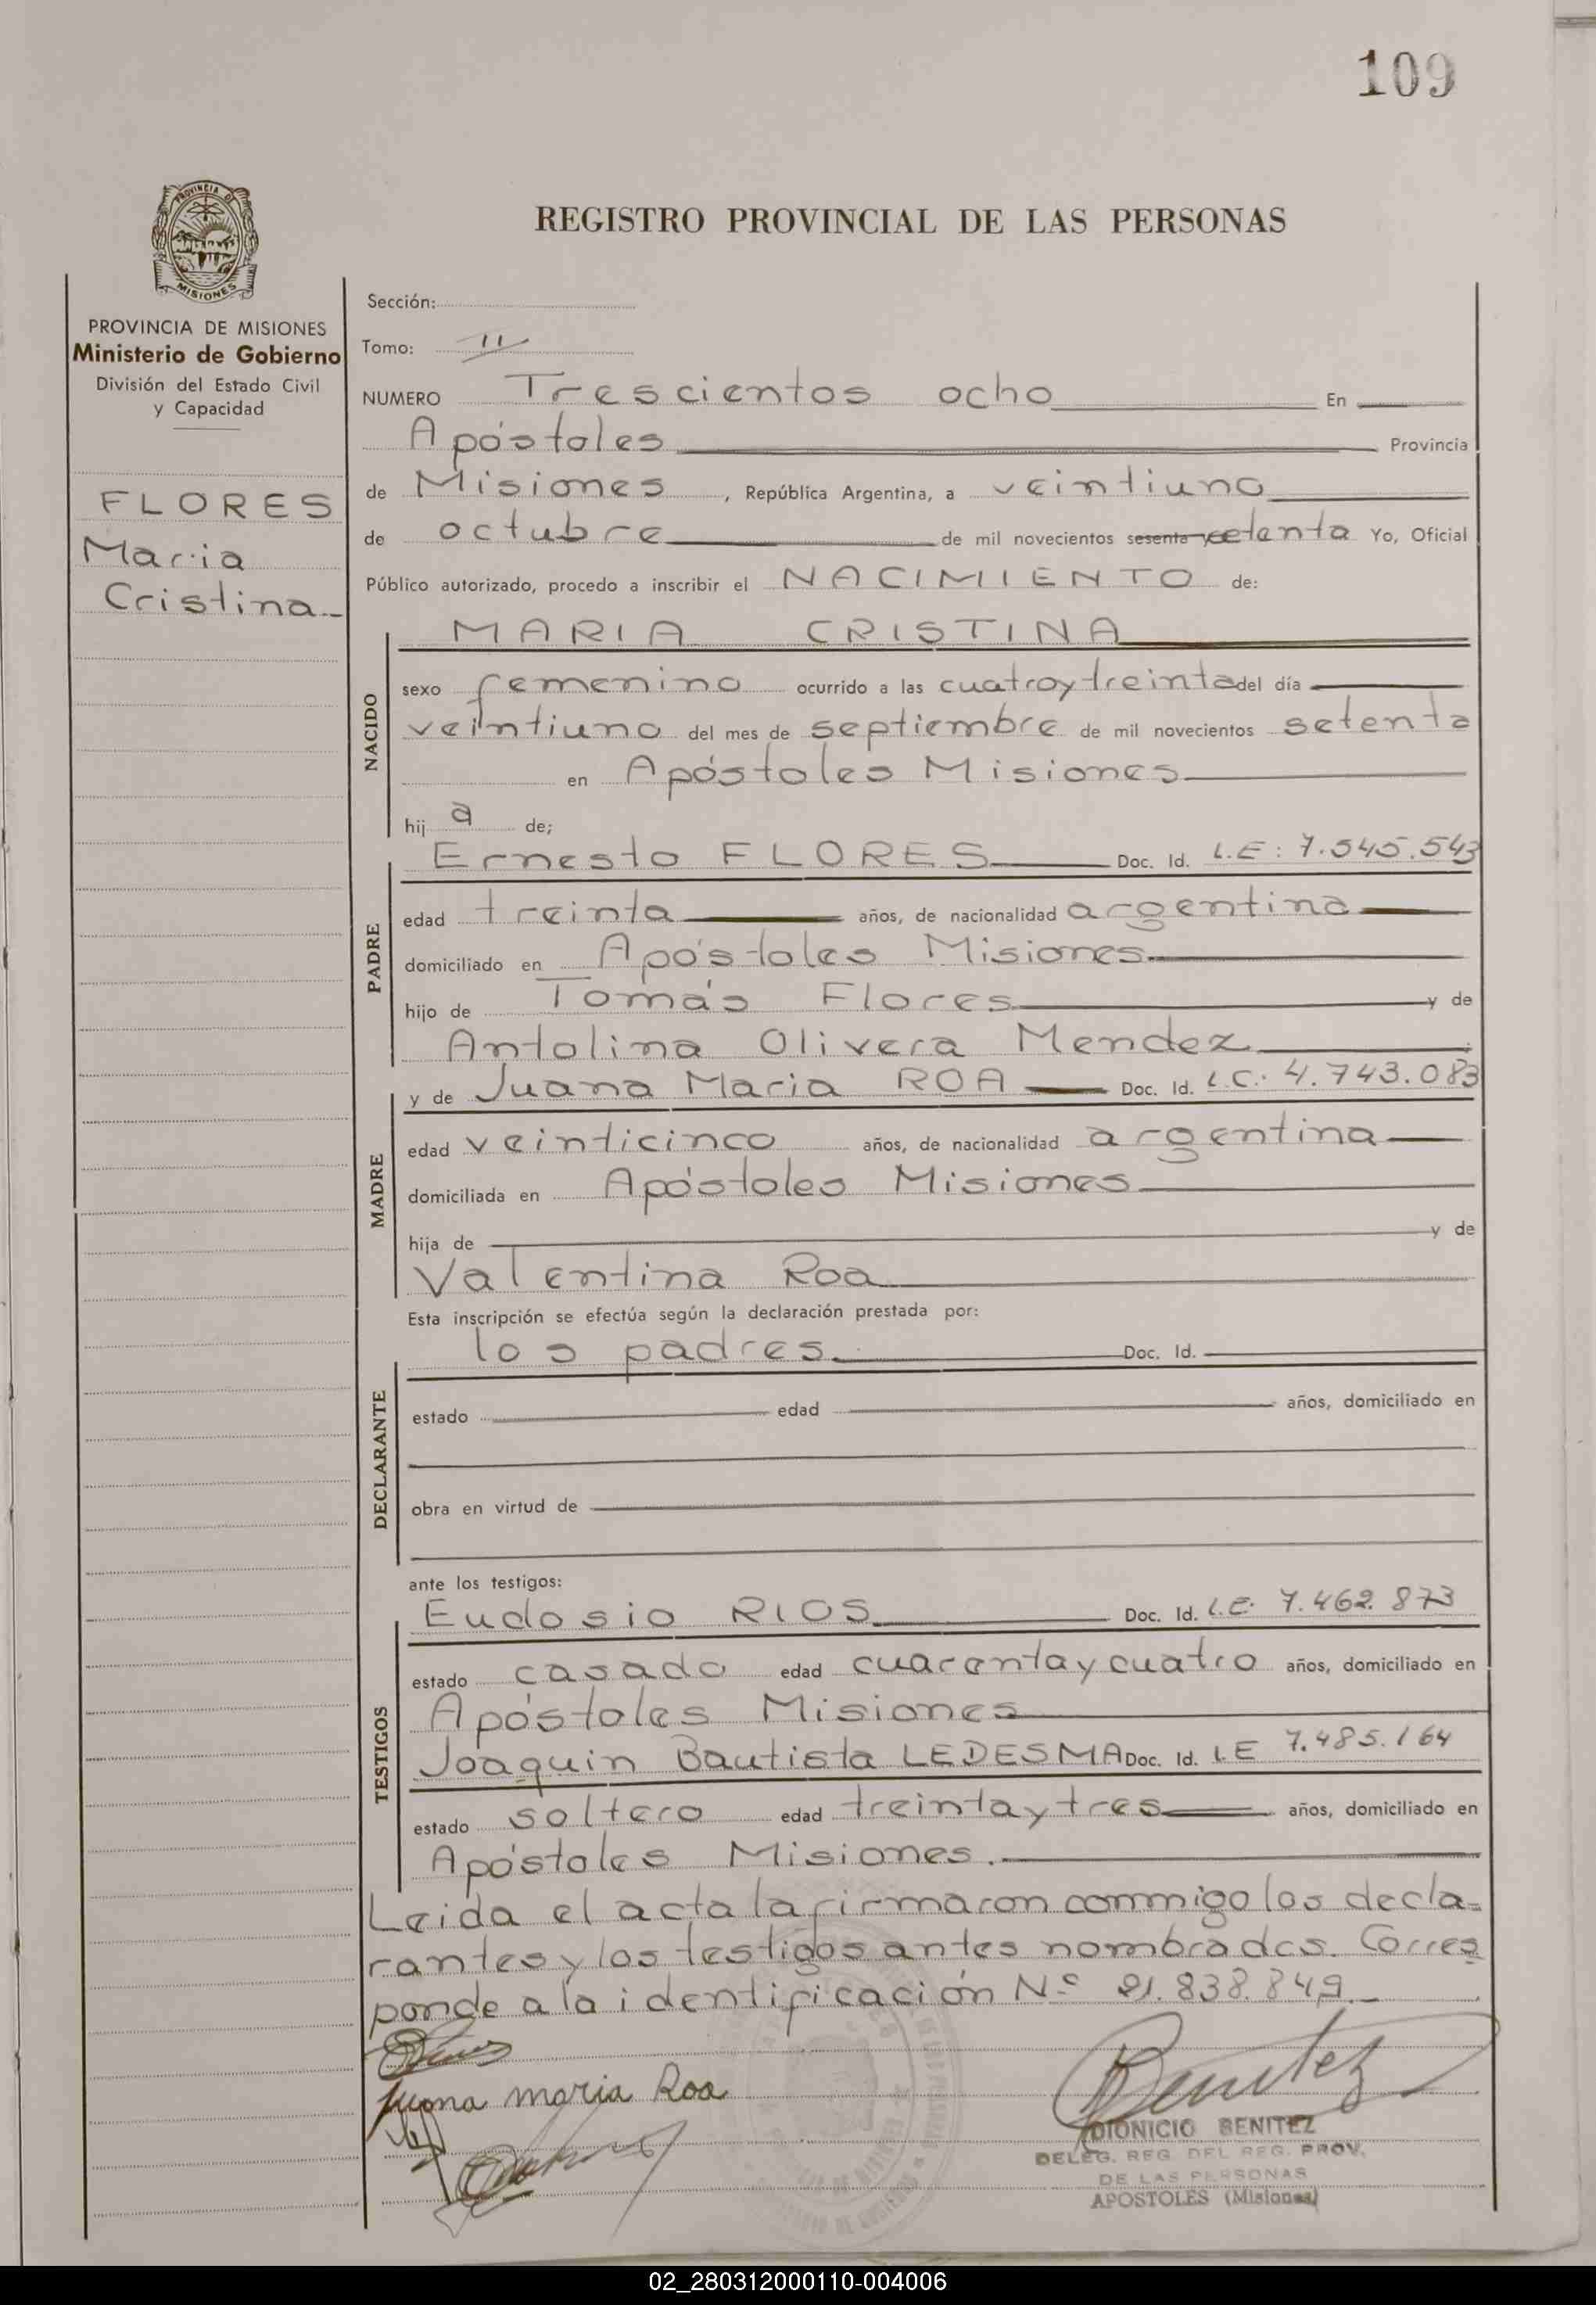 109
PROVINCIA DE
MISIONES
REGISTRO PROVINCIAL DE LAS PERSONAS
PROVINCIA DE MISIONES
Ministerio de Gobierno
División del Estado Civil
y Capacidad
FLORES
Maria
Cristina
Sección:
Tomo: II
NUMERO Trescientos ocho En
Apóstoles Provincia
de Misiones, República Argentina, a veintiuno
de octubre de mil novecientos sesenta y setenta Yo, Oficial
Público autorizado, procedo a inscribir el NACIMIENTO de:
MARIA CRISTINA
NACIDO
sexo femenino ocurrido a las cuatro y treinta del día
veintiuno del mes de septiembre de mil novecientos setenta
en Apóstoles Misiones
hij a de;
Ernesto FLORES Doc. Id. L.E: 7.545.543
PADRE
edad treinta años, de nacionalidad argentina
domiciliado en Apóstoles Misiones
hijo de Tomás Flores y de
Antolina Olivera Mendez
y de Juana Maria ROA Doc. Id. L.C.: 4.743.083
MADRE
edad veinticinco años, de nacionalidad argentina
domiciliada en Apóstoles Misiones
hija de y de
Valentina Roa
Esta inscripción se efectúa según la declaración prestada por:
los padres. Doc. Id.
DECLARANTE
estado edad años, domiciliado en
obra en virtud de
ante los testigos:
Eudosio RIOS Doc. Id. L.E. 7.462.873
TESTIGOS
estado casado edad cuarenta y cuatro años, domiciliado en
Apóstoles Misiones
Joaquin Bautista LEDESMA Doc. Id. L.E 7.485.164
estado soltero edad treinta y tres años, domiciliado en
Apóstoles Misiones.
Leida el acta la firmaron conmigo los decla-
rantes y los testigos antes nombrados. Corres
ponde a la identificación Nº 21.838.849
Juana maria Roa
Benitez
DIONICIO BENITEZ
DELEG. REG. DEL REG. PROV.
DE LAS PERSONAS
APOSTOLES (Misiones)
02_280312000110-004006